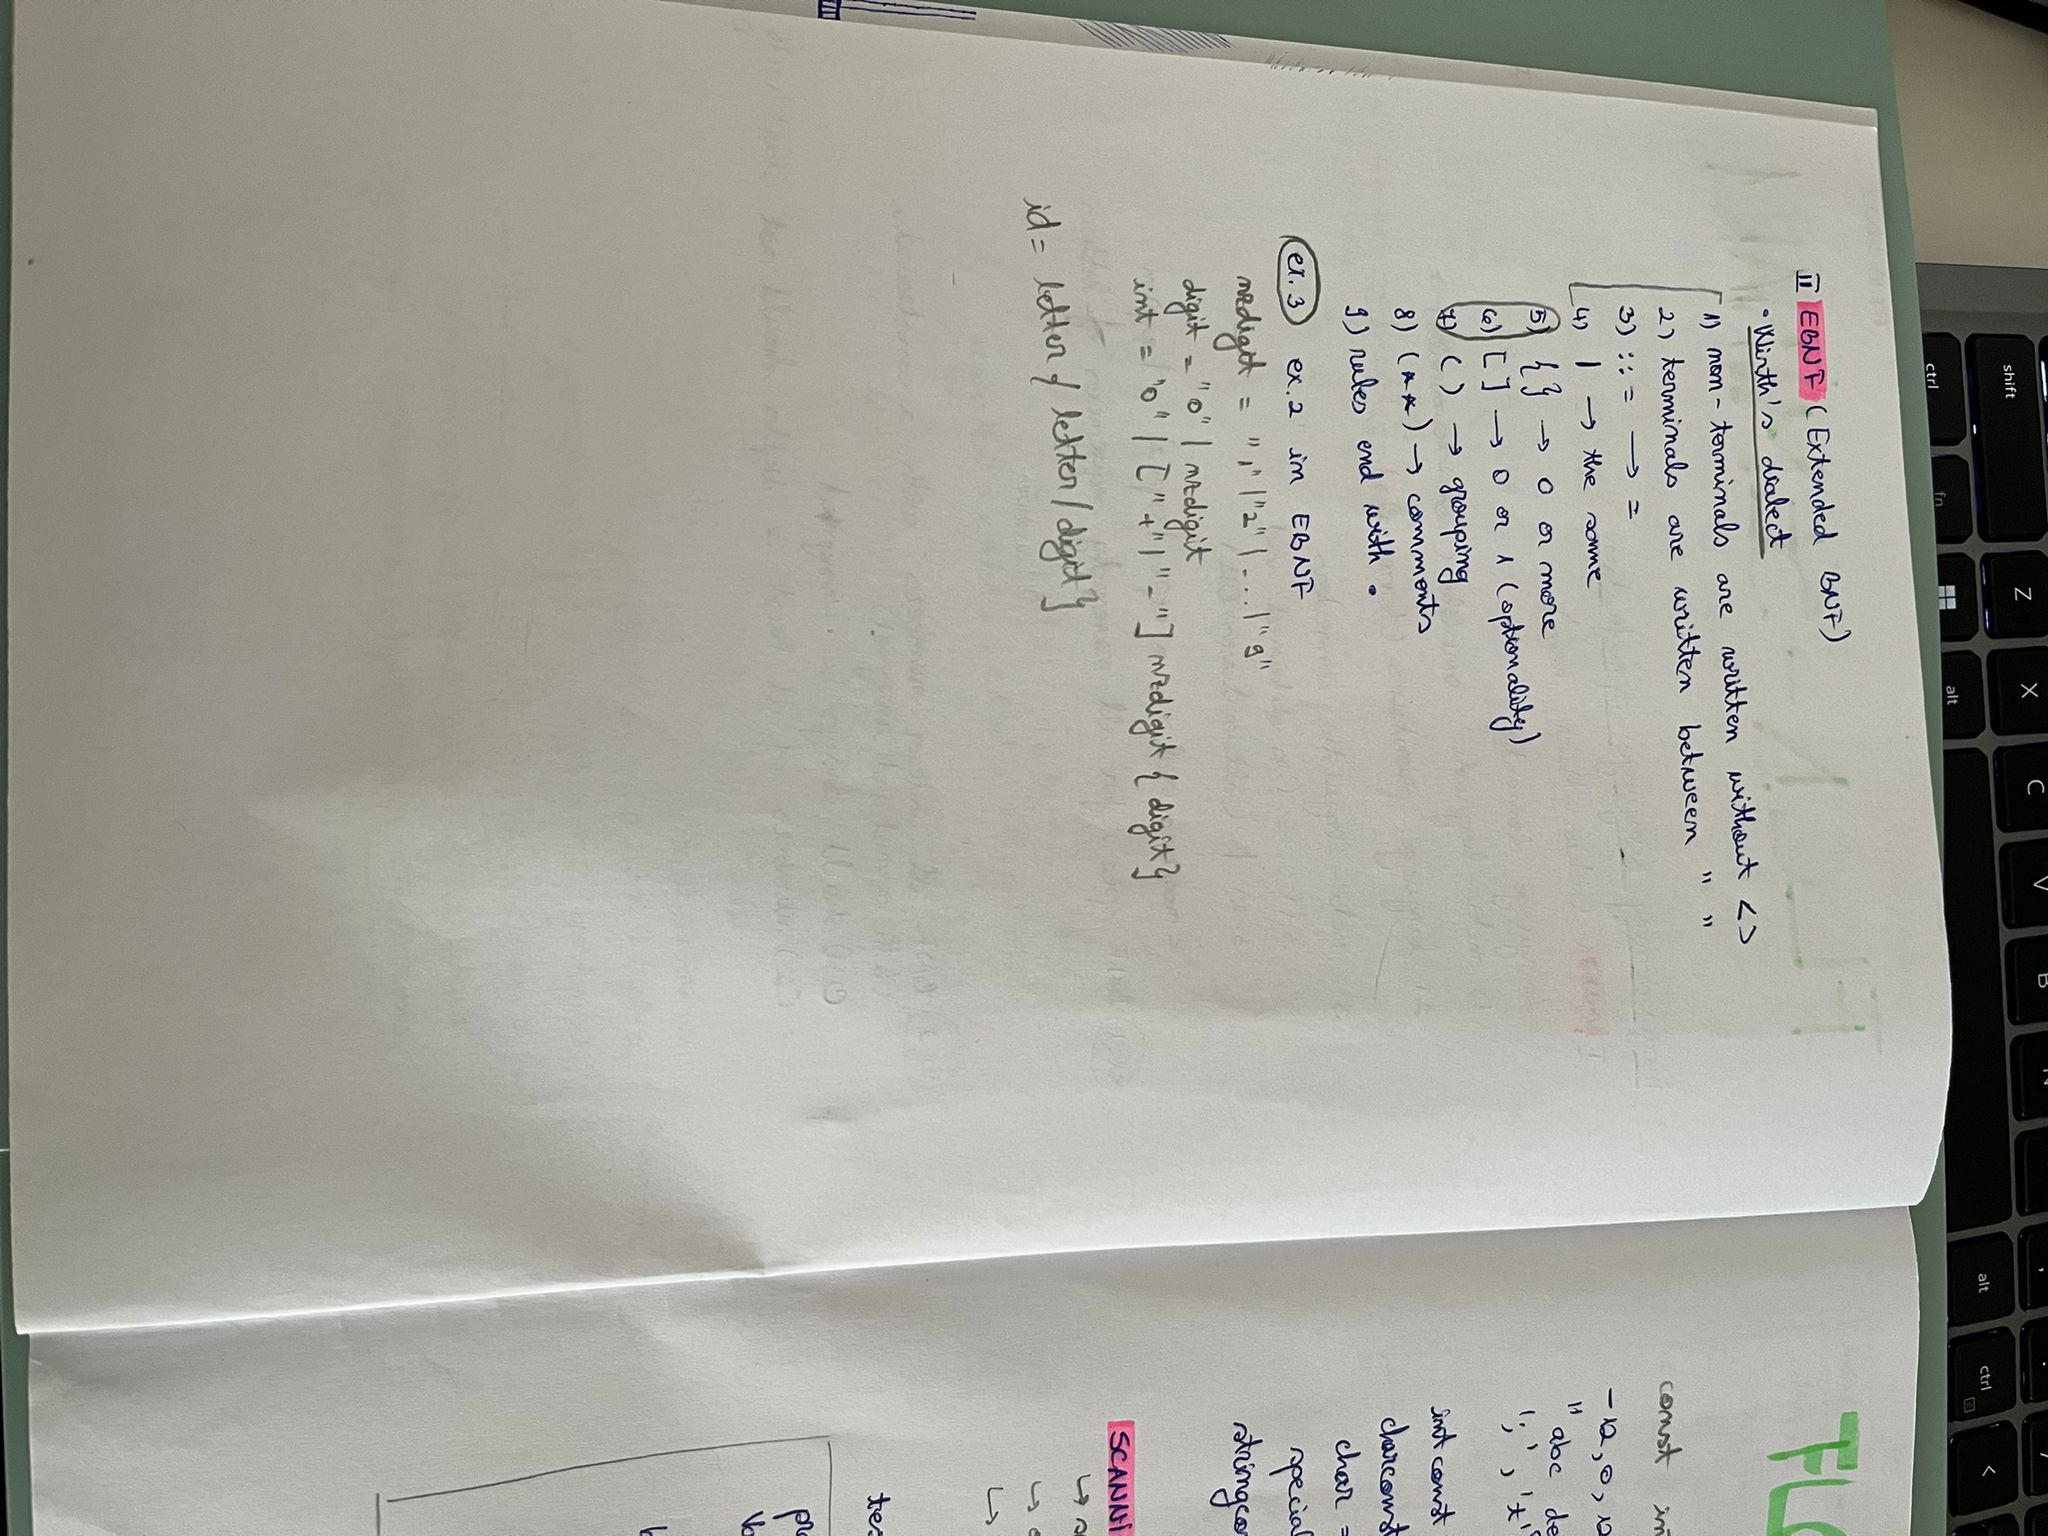 shift
Z
X
C
V
B
N
ctrl
fn
alt
alt
ctrl
<
II EBNF (Extended BNF)
• Wirth's dialect
1) non-terminals are written without < >
2) terminals are written between " "
3) ::= → =
4) | → the same
5) { } → 0 or more
6) [ ] → 0 or 1 (optionality)
7) ( ) → grouping
8) (* *) → comments
9) rules end with .
ex.3 ex.2 in EBNF
nzdigit = "1" | "2" | ... | "9"
digit = "0" | nzdigit
int = "0" | ["+" | "-"] nzdigit { digit }
id = letter { letter / digit }
FLC
const in
-12, 0, 12
"abc de
';', 't'
int const
charconst
char =
special
stringco
SCANNI
tes
pr
Va
b